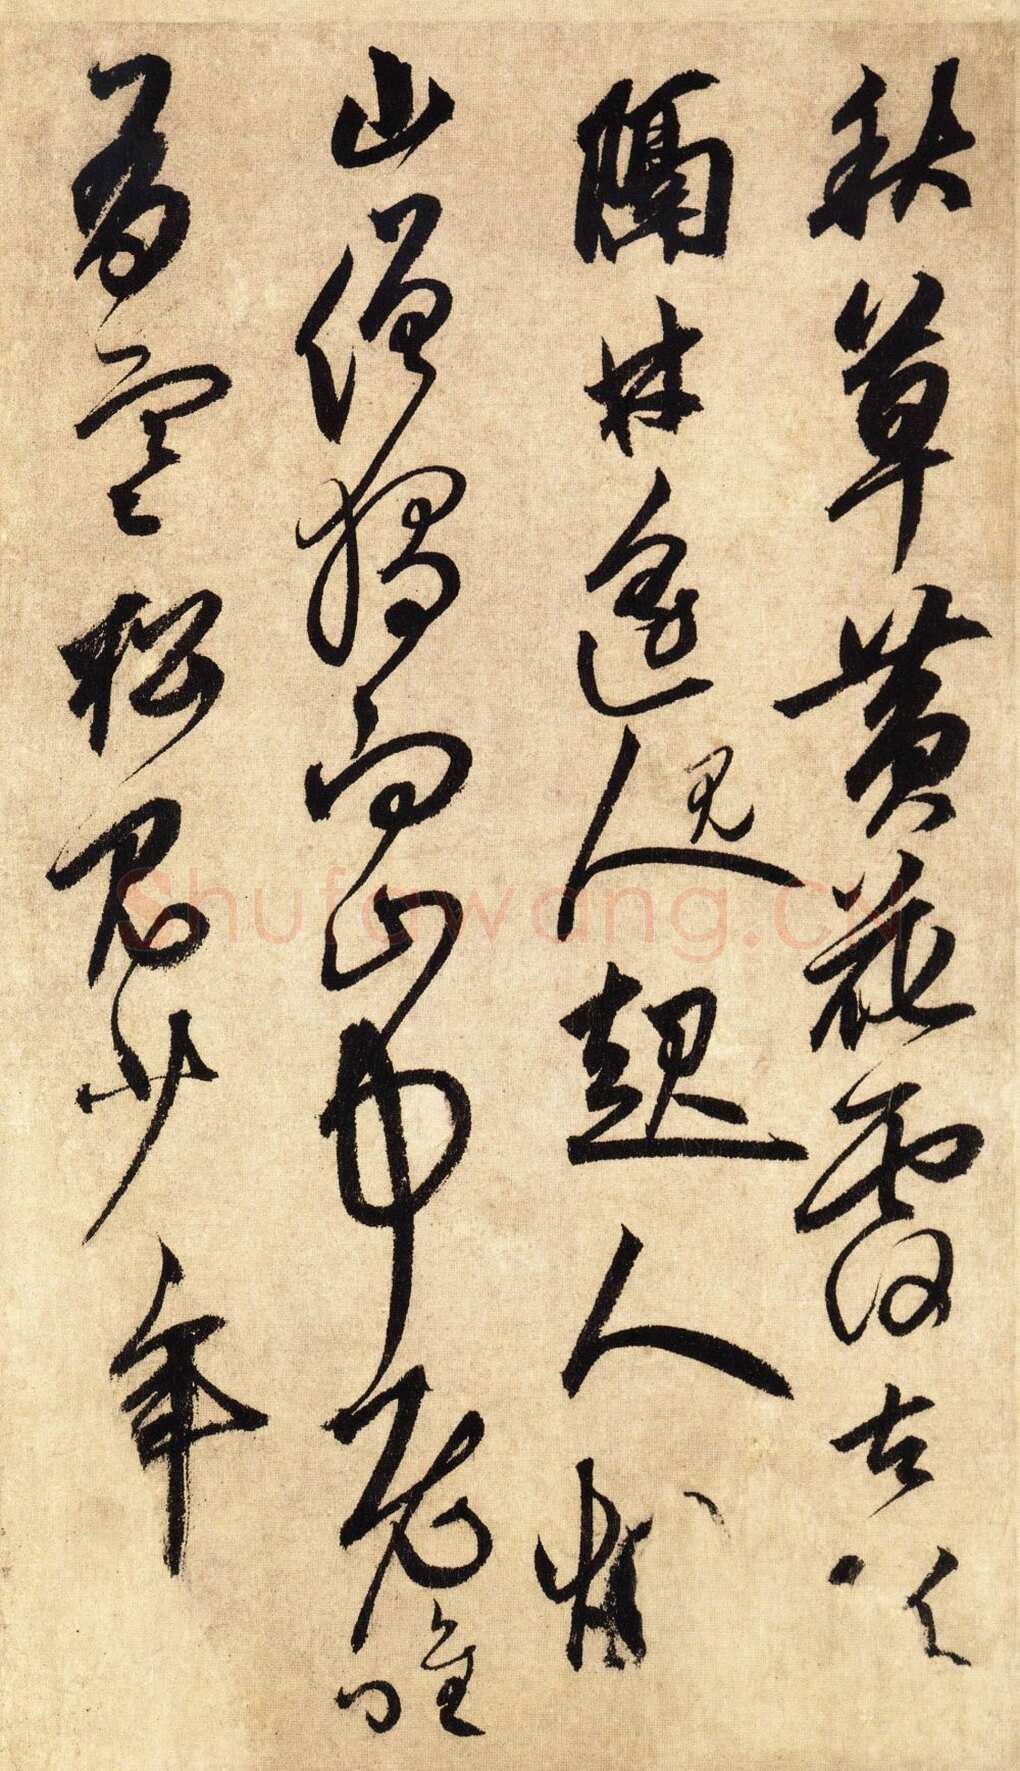 秋草黄花覆古
隔林遥人見起人烟
山僧獨向山中老唯
有寒松見少年
Shufawang.cn